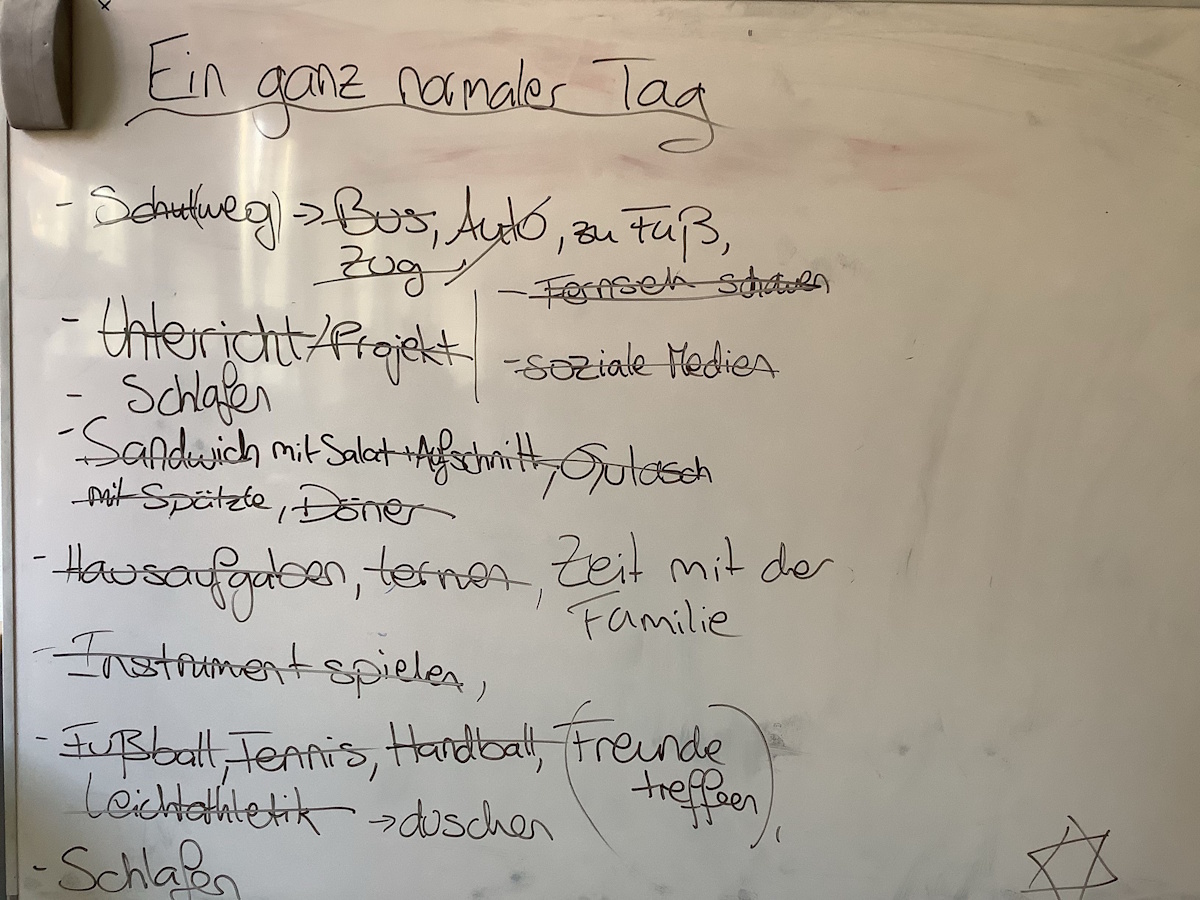 Ein ganz normaler Tag
- Schul(weg) → Bus, Auto, zu Fuß,
Zug
- Fernseh schauen
- Unterricht/Projekt
- soziale Medien
- Schlafen
- Sandwich mit Salat + Aufschnitt, Gulasch
mit Spätzle, Döner
- Hausaufgaben, lernen, Zeit mit der
Familie
- Instrument spielen,
- Fußball, Tennis, Handball, (Freunde
treffen),
Leichtathletik → duschen
- Schlafen